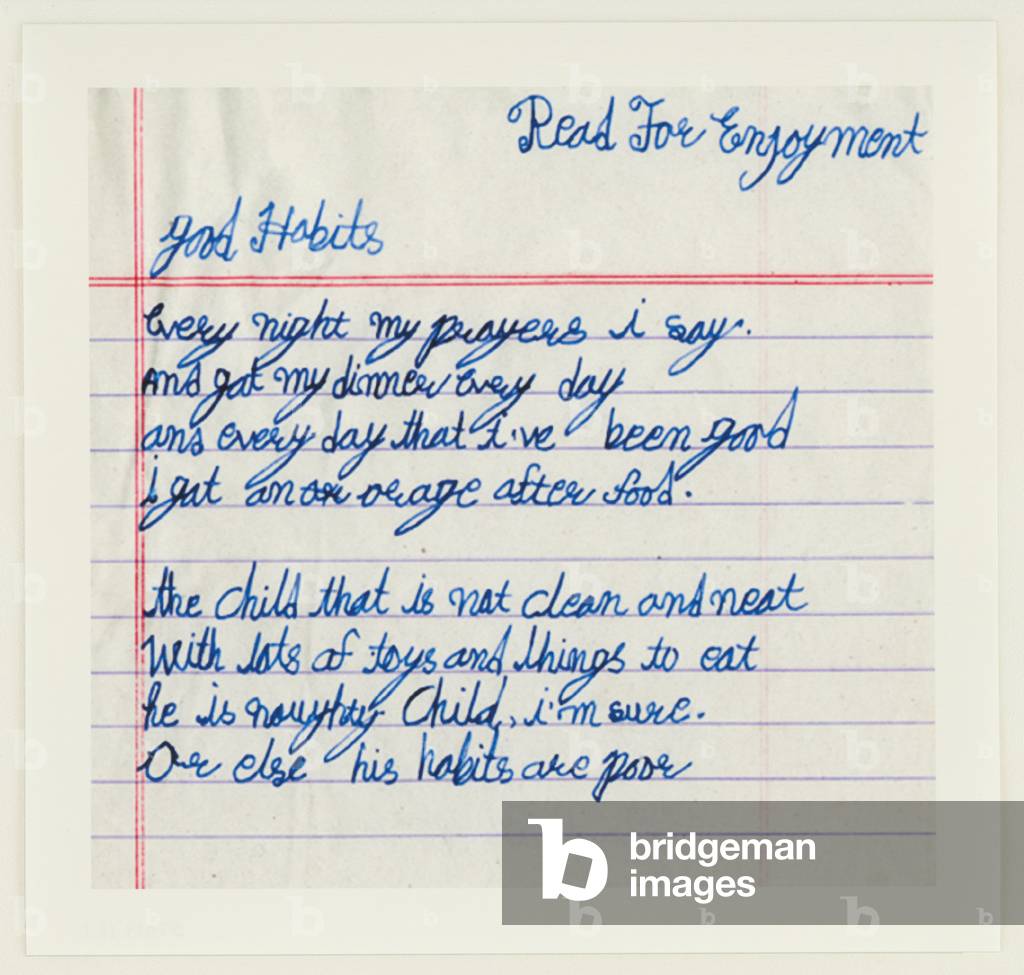 Read For Enjoyment
good Habits
Every night my prayers i say.
And gat my dinner every day
and every day that i've been good
i gat an orage after food.
the child that is not clean and neat
With lots of toys and things to eat
he is noughty Child, i'm sure.
Or else his habits are poor
bridgeman
images